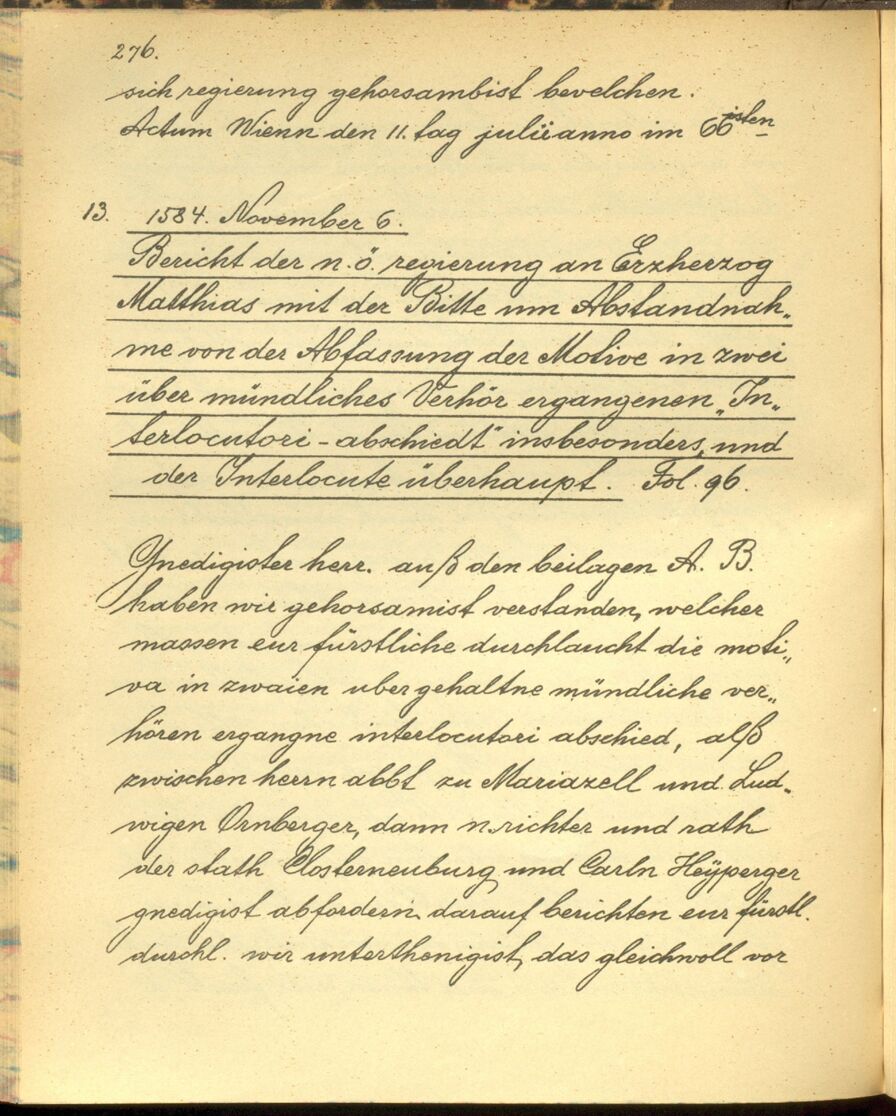 276.
sich regierung gehorsambist bevelchen.
Actum Wienn den 11. tag julii anno im 66isten
13. 1584. November 6.
Bericht der n. ö. regierung an Erzherzog
Matthias mit der Bitte um Abstandnah„
me von der Abfassung der Motive in zwei
über mündliches Verhör ergangenen „In„
terlocutori - abschiedt" insbesonders, und
der Interlocute überhaupt. Fol. 96.
Gnedigister herr. auß den beilagen A. B.
haben wir gehorsamist verstanden, welcher
massen eur fürstliche durchlaucht die moti„
va in zwaien uber gehaltne mündliche ver„
hören ergangne interlocutori abschied, alß
zwischen herrn abbt zu Mariazell und Lud„
wigen Ornberger, dann n. richter und rath
der stath Closterneuburg und Carln Heÿperger
gnedigist abfordern, darauf berichten eur fürstl.
durchl. wir unterthenigist, das gleichwoll vor